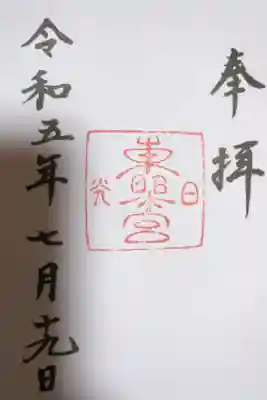 奉拝
日光
東照宮
令和五年七月十九日